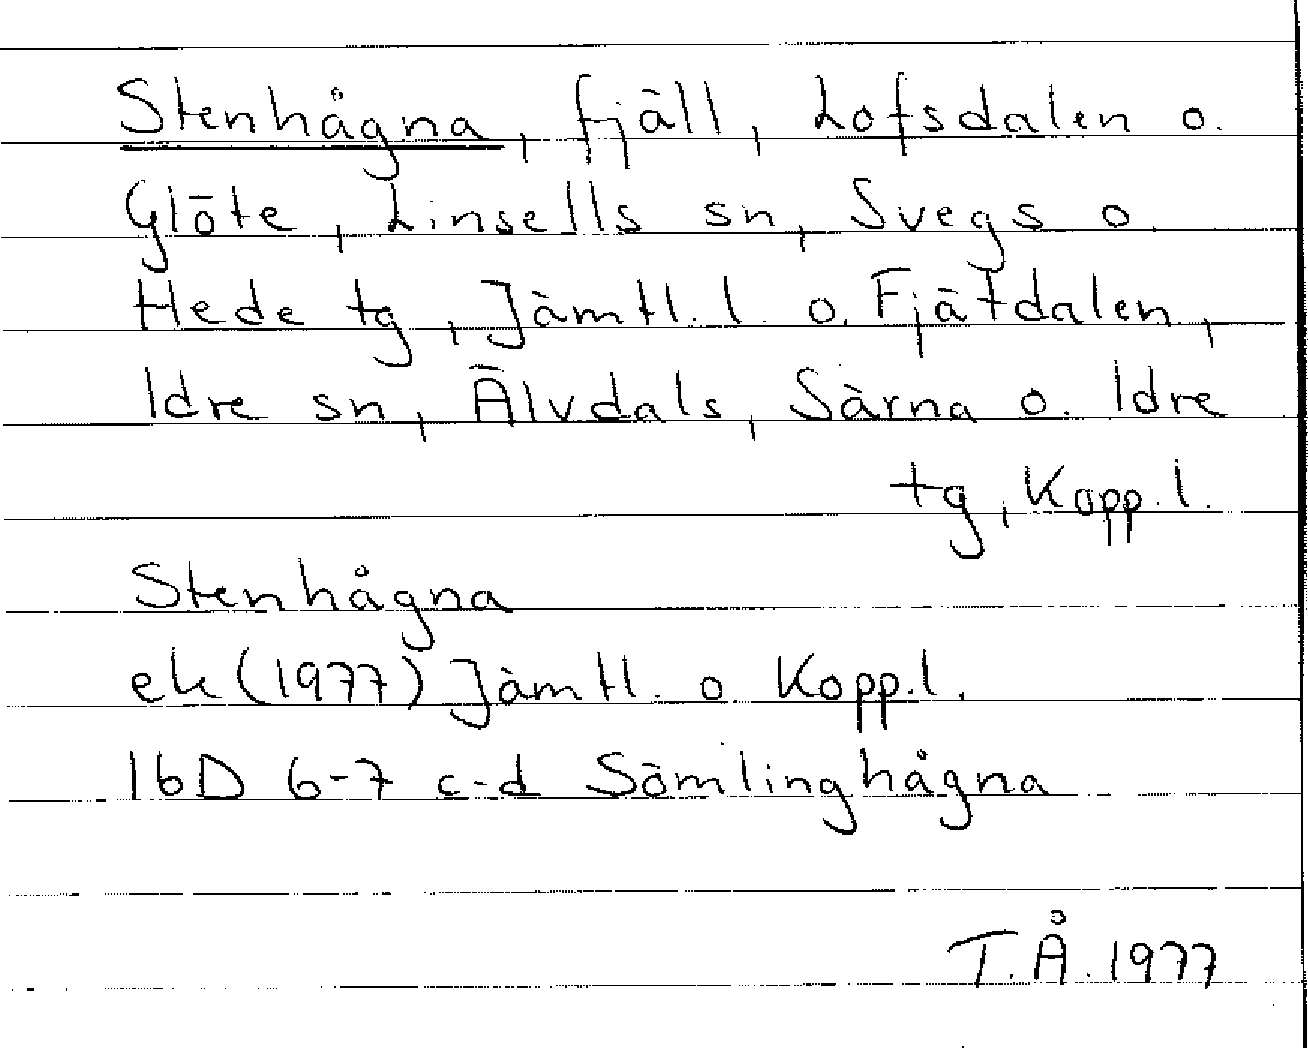 Stenhågna, fjäll, Lofsdalen o.
Glöte, Linsells sn, Svegs o
Hede tg, Jämtl. l. o. Fjätdalen,
Idre sn, Älvdals, Särna o. Idre
tg, Kopp. l.
Stenhågna
ek (1977) Jämtl. o Kopp. l.
16D 6-7 c-d Sömlinghågna
T.Å. 1977